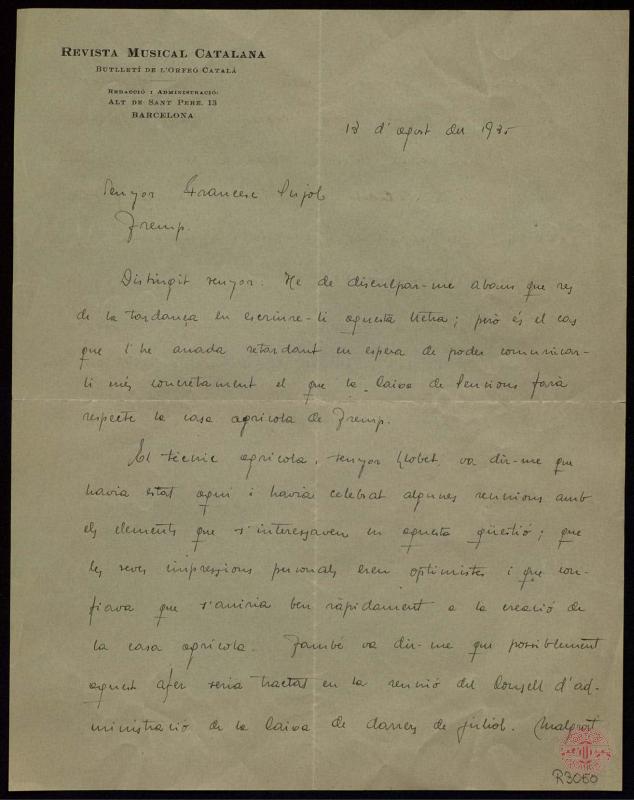 REVISTA MUSICAL CATALANA
BUTLLETÍ DE L'ORFEÓ CATALÀ
REDACCIÓ I ADMINISTRACIÓ:
ALT DE SANT PERE, 13
BARCELONA
13 d'agost del 1935
Senyor Francesc Pujol
Tremp.
Distingit senyor: He de disculpar-me abans que res
de la tardança en escriure-li aquesta lletra; però és el cas
que l'he anada retardant en espera de poder comunicar-
li més concretament el que la Caixa de Pensions faria
respecte la casa agrícola de Tremp.
El tècnic agrícola, senyor Llobet, va dir-me que
havia estat aquí i havia celebrat algunes reunions amb
els elements que s'interessaven en aquesta qüestió; que
les seves impressions personals eren optimistes i que con-
fiava que s'aniria ben ràpidament a la creació de
la casa agrícola. També va dir-me que possiblement
aquest afer seria tractat en la reunió del Consell d'ad-
ministració de la Caixa de darrers de juliol. Malgrat
R3060